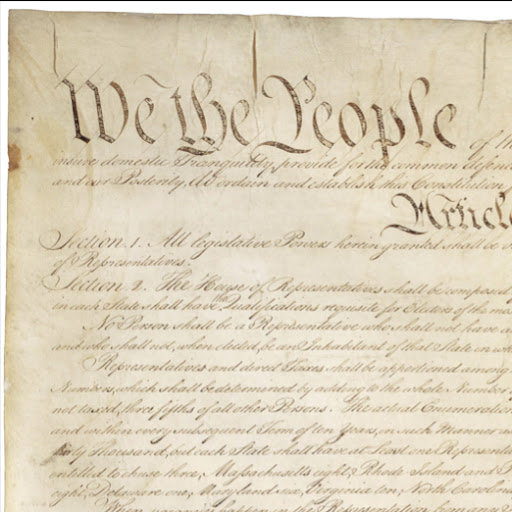 We the People of th
insure domestic Tranquility, provide for the common defenc
and our Posterity, do ordain and establish this Constitution
Article
Section. 1. All legislative Powers herein granted shall be v
of Representatives.
Section. 2. The House of Representatives shall be composed
in each State shall have the Qualifications requisite for Electors of the mos
No Person shall be a Representative who shall not have a
and who shall not, when elected, be an Inhabitant of that State in wh
Representatives and direct Taxes shall be apportioned among
Numbers, which shall be determined by adding to the whole Number
not taxed, three fifths of all other Persons. The actual Enumeration
and within every subsequent Term of ten Years, in such Manner as
thirty Thousand, but each State shall have at Least one Representa
entitled to chuse three, Massachusetts eight, Rhode Island and P
eight, Delaware one, Maryland six, Virginia ten, North Carolina
When vacancies happen in the Representation from any